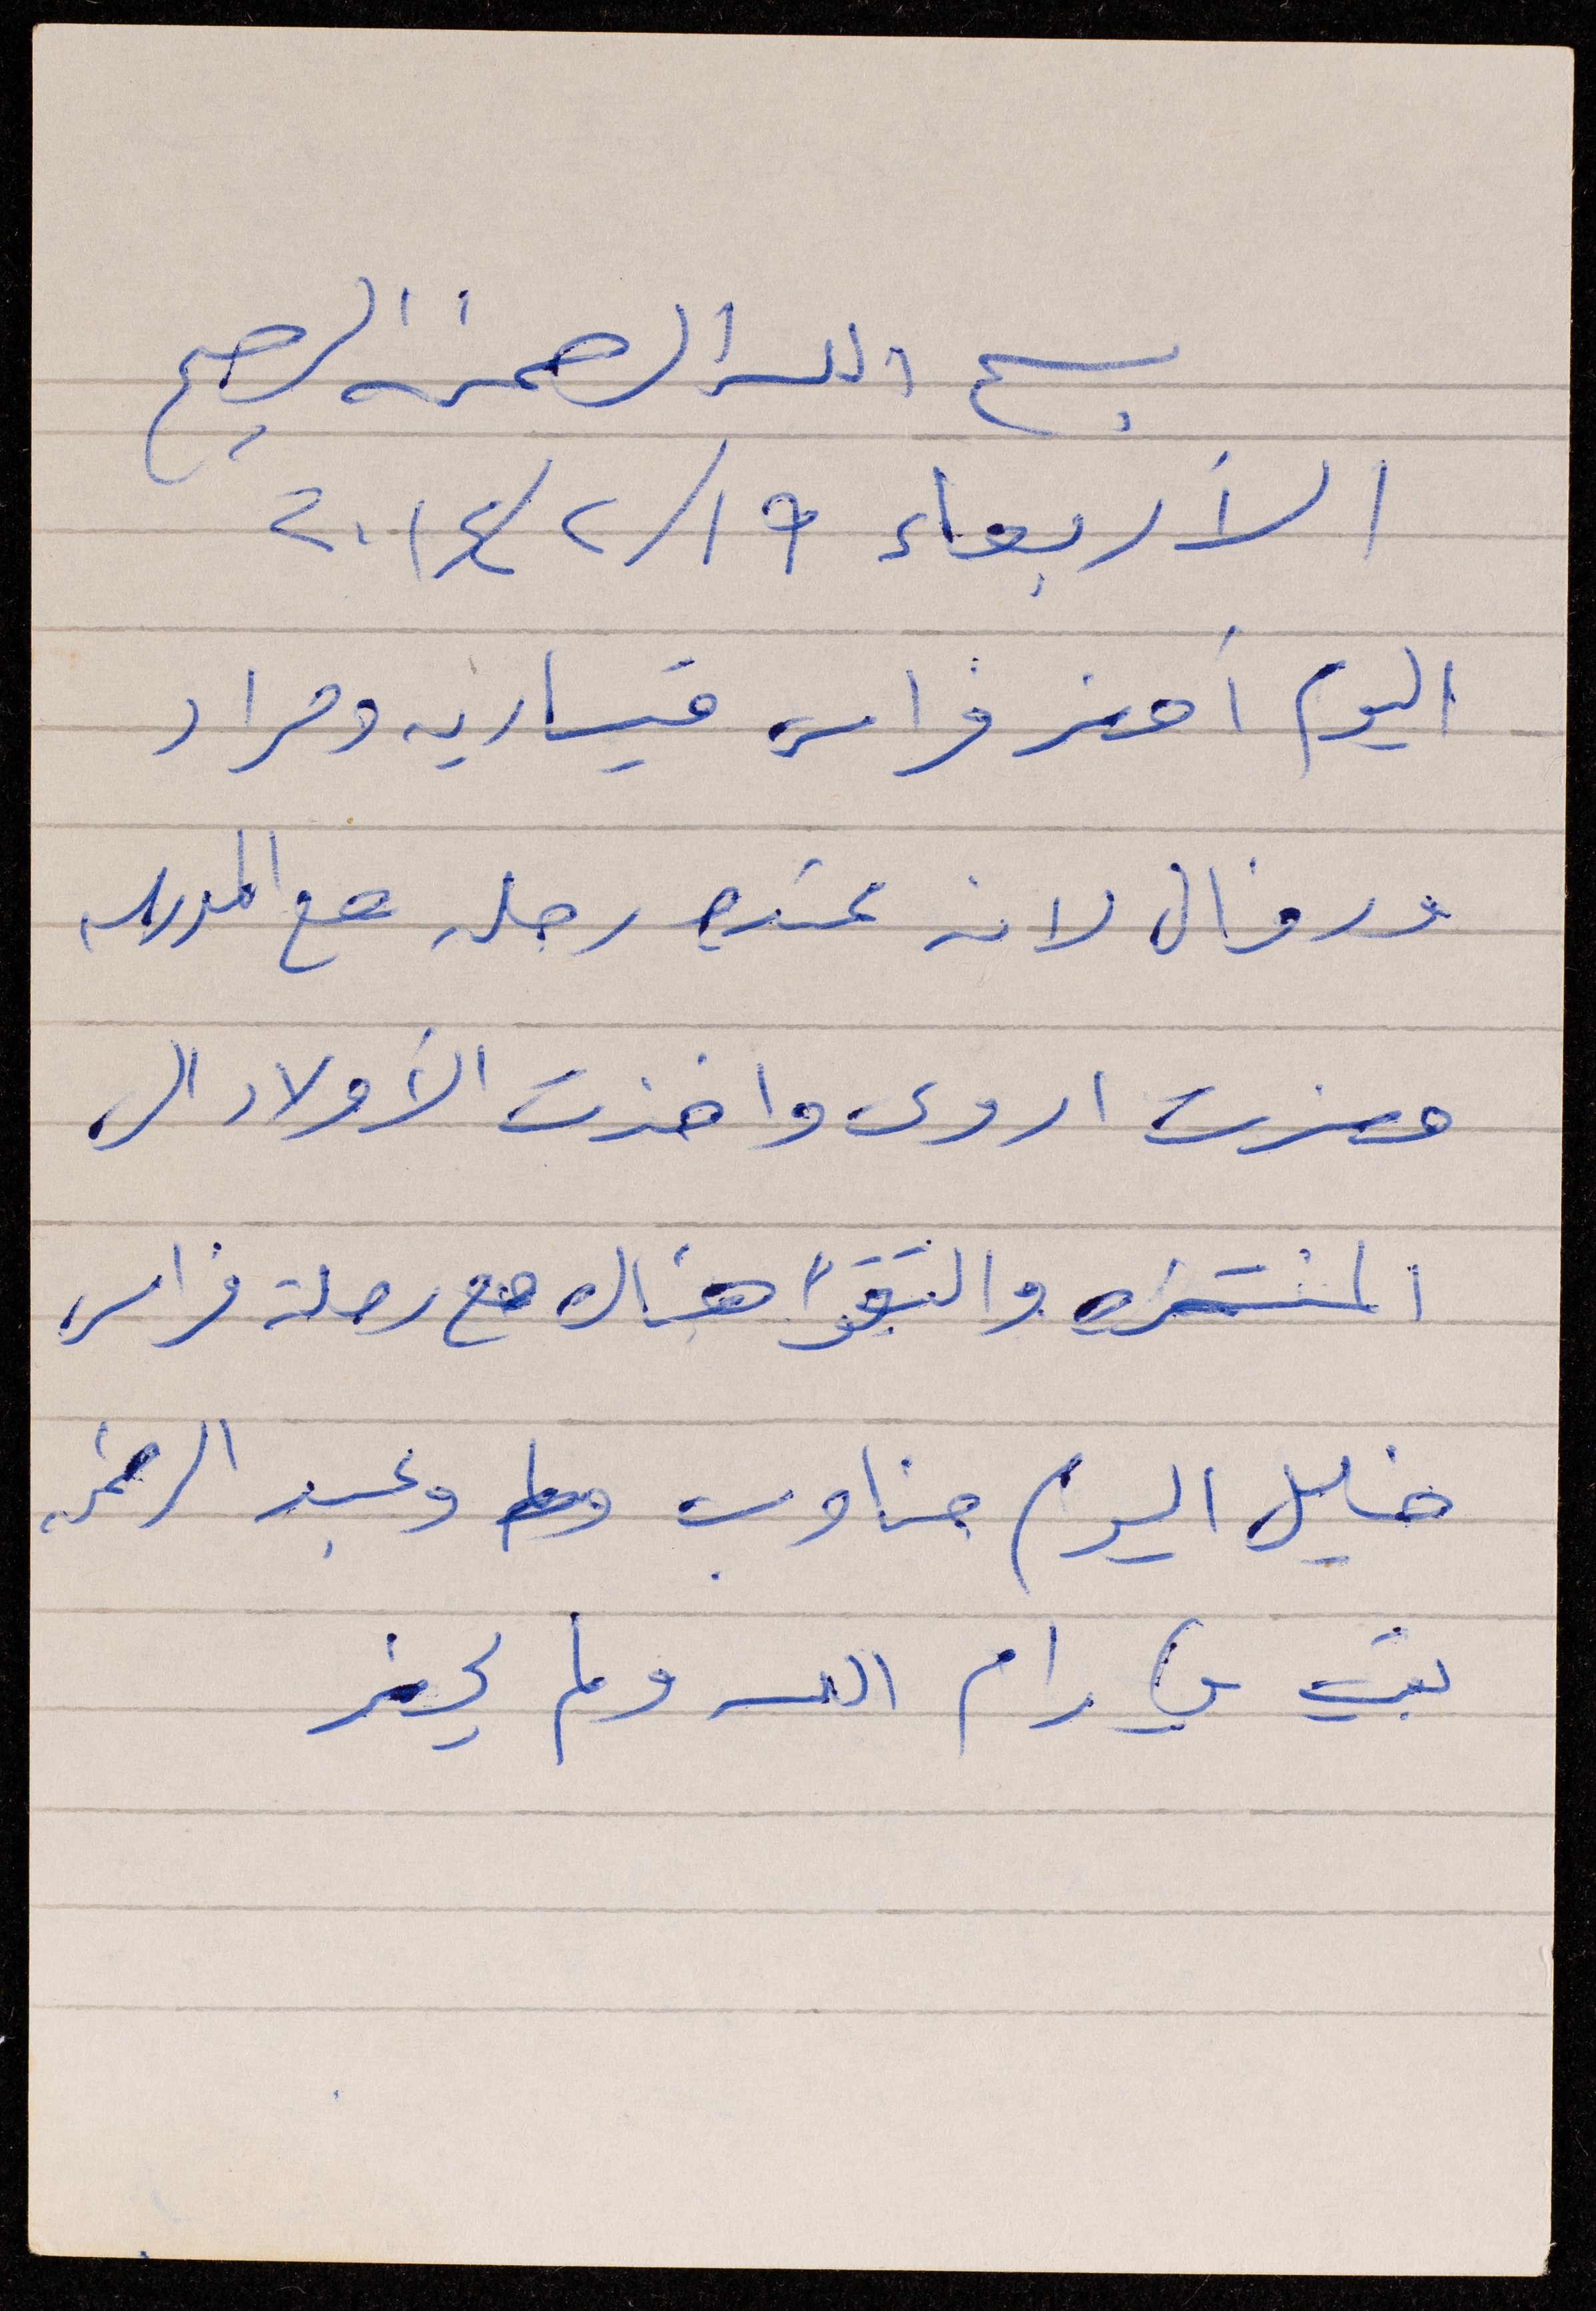 بسم الله الرحمن الرحيم
الأربعاء ١٩/٢/٢٠١٤
اليوم أحضر فراس قيساريه ومراد
ونوال لانه عنده رحله مع المدرسه
حضرت اروى واخذت الأولاد الى
المنتزه والتقوا هناك مع رحلة فراس
خليل اليوم مناوب وعبد الرحمن
بقي في رام الله ولم يحضر